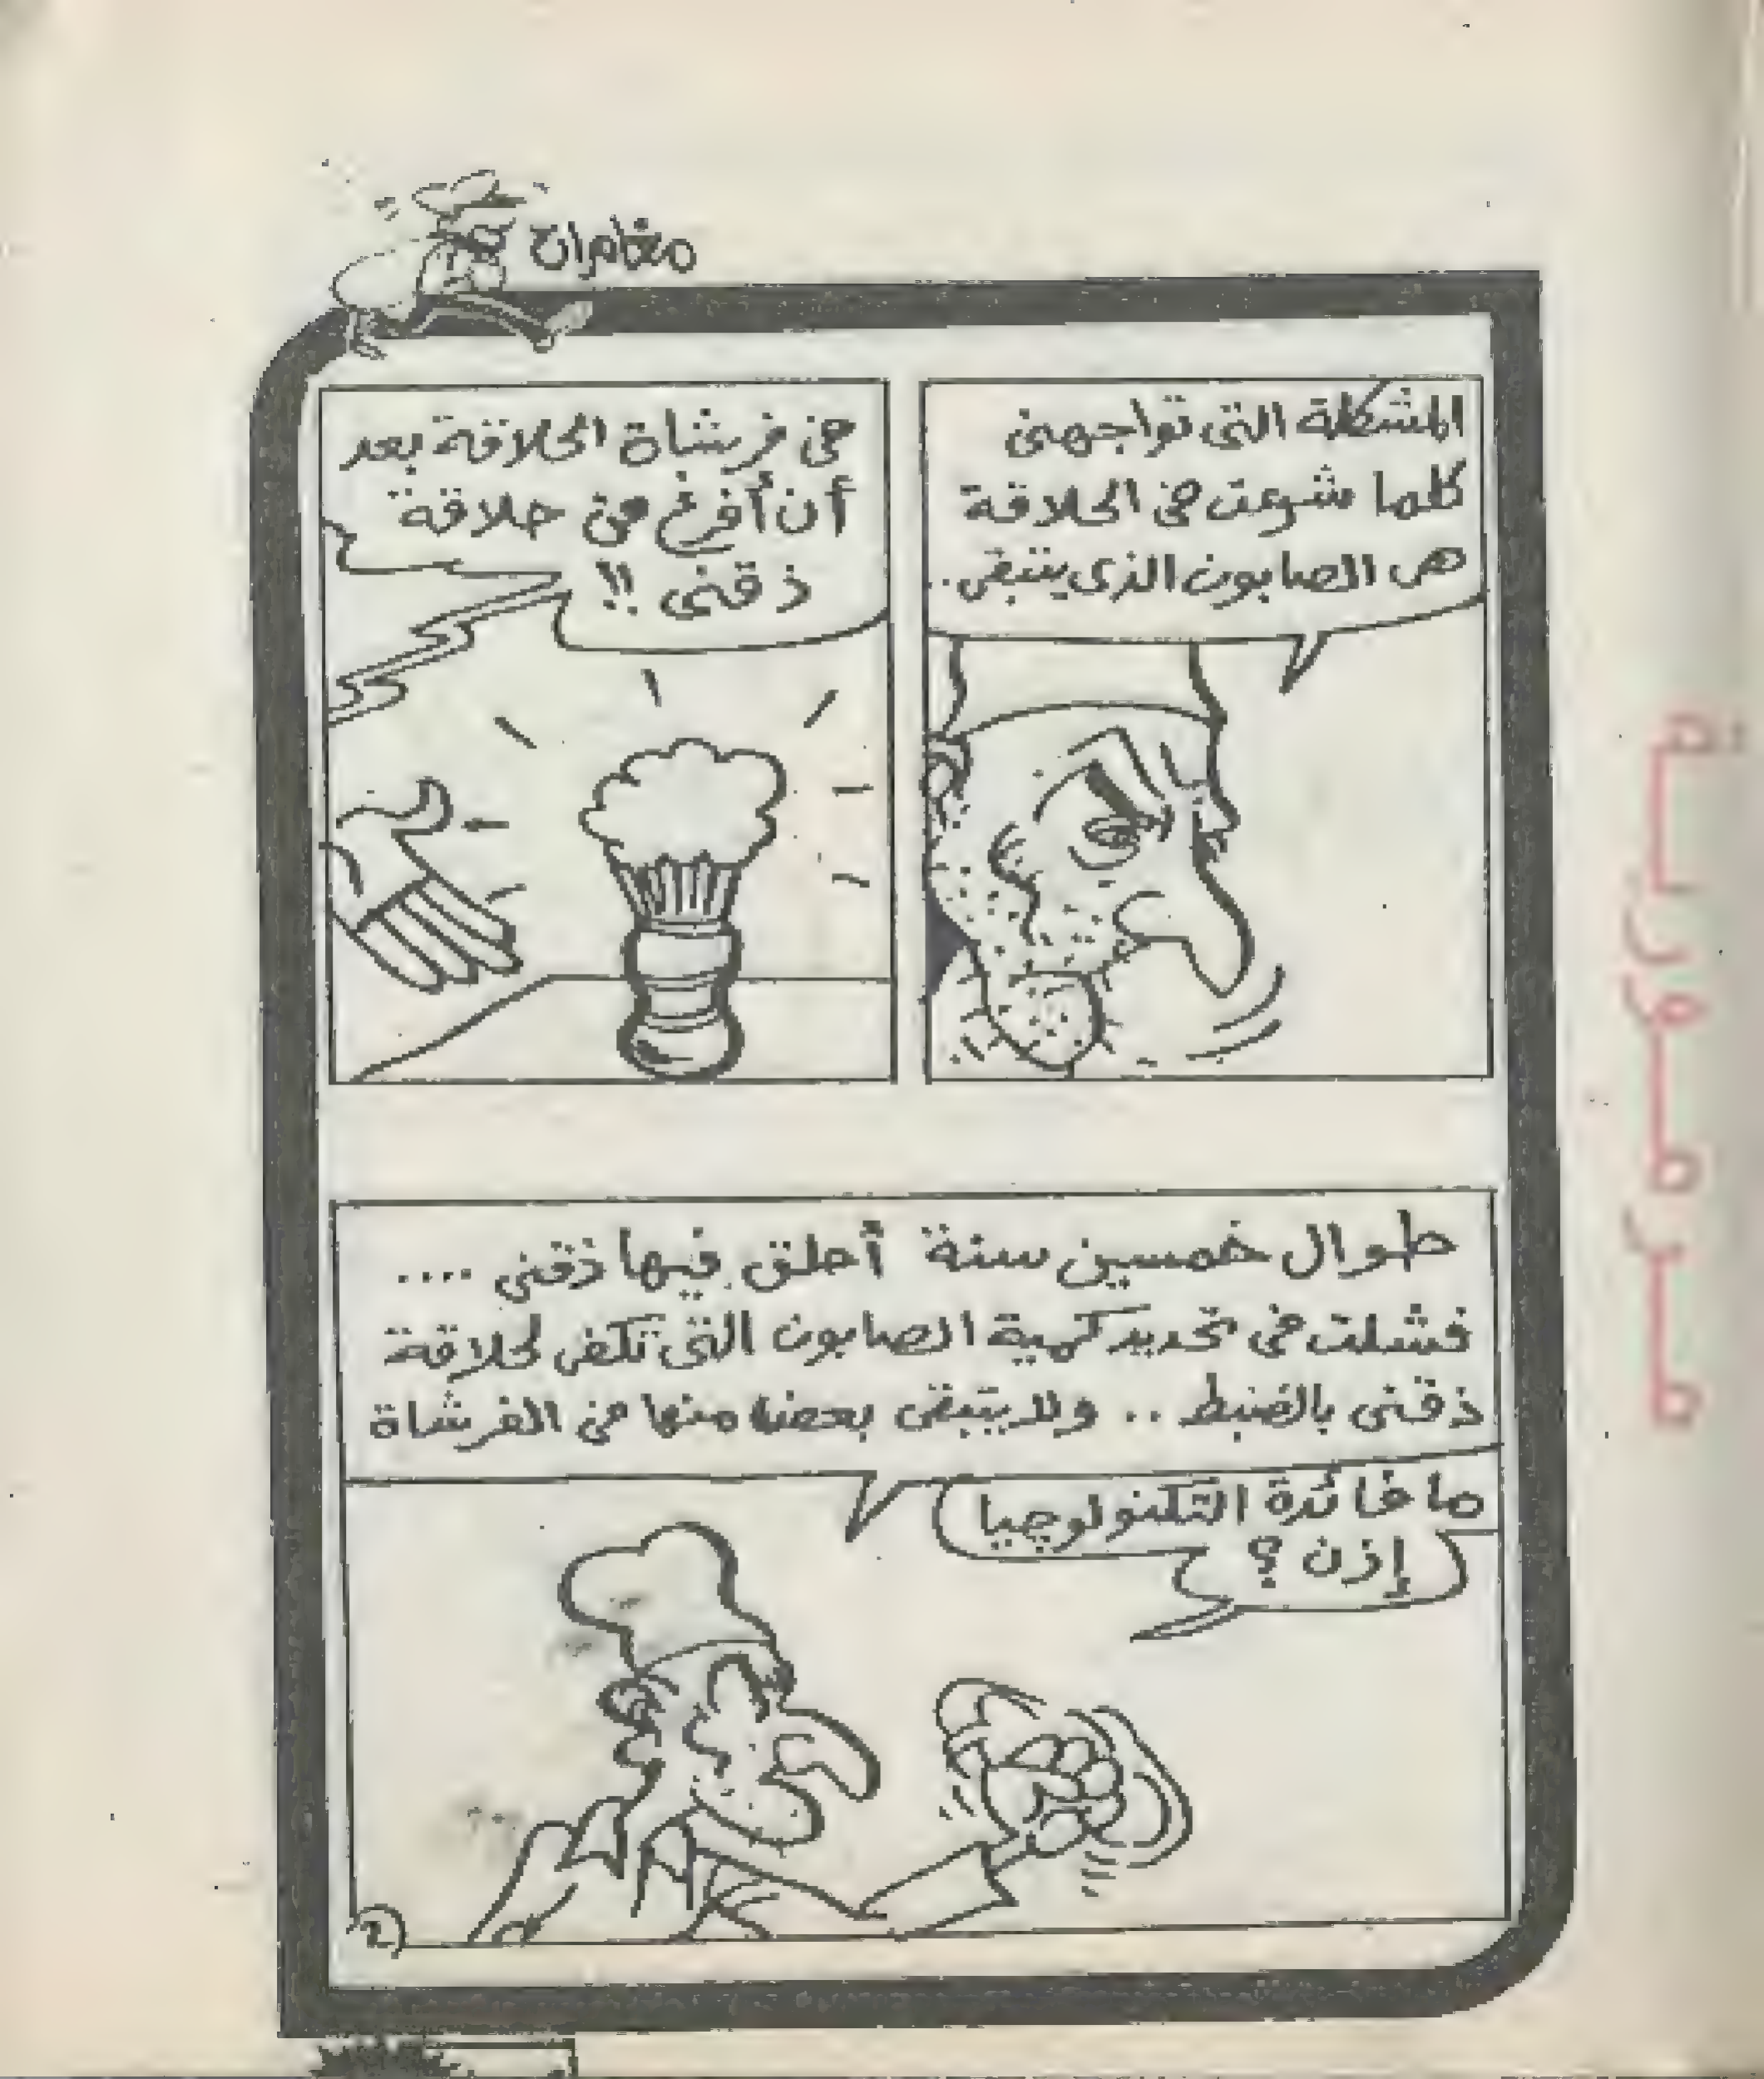 مغامرات
المشكلة التى تواجهنى
كلما شرعت فى الحلاقة
هى الصابون الذى يتبقى..
فى فرشاة الحلاقة بعد
أن أفرغ من حلاقة
ذقنى !!
طوال خمسين سنة أحلق فيها ذقنى ....
فشلت فى تحديد كمية الصابون التى تكفى لحلاقة
ذقنى بالضبط .. ولا يتبقى بعضا منها فى الفرشاة
ما فائدة التكنولوچيا
إذن ؟
2